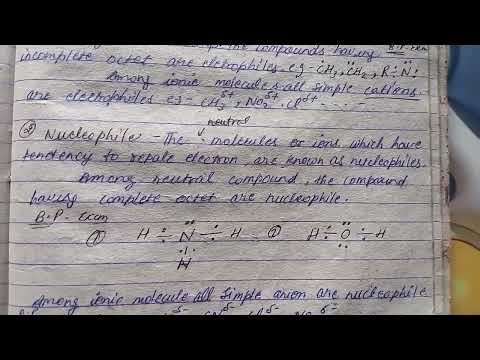 the compounds having B.P. exam
incomplete octet are eletrophiles e.g - CH3, CH2, R-N:
Among ionic molecules all simple cations
are electrophiles eg - CH3 δ+, NO2 δ+, Cl δ+ - - - - -
② Nucleophile - The neutral molecules or ions which have
tendency to repale electron, are known as nucleophiles.
Among neutral compound, the compound
having complete octet are nucleophile.
B.P. exam
① H ÷ N ÷ H ② H ÷ O ÷ H
H
Among ionic molecule all simple anion are nucleophile